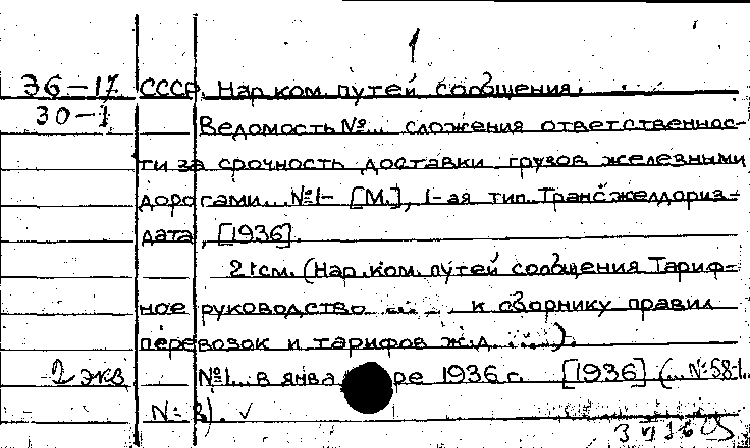 1
Э6-17 СССР. Нар.ком.путей сообщения.
30-1 Ведомость №... сложения ответственнос-
ти за срочность доставки грузов железными
дорогами... №1- [М.], 1-ая тип. Трансжелдориз-
дата, [1936].
21см. (Нар.ком.путей сообщения Тариф-
ное руководство ..... к сборнику правил
перевозок и тарифов ж.д. .....).
2 экз №1... в янва ре 1936 г. [1936] (... №58-1..
N- 3). ✓